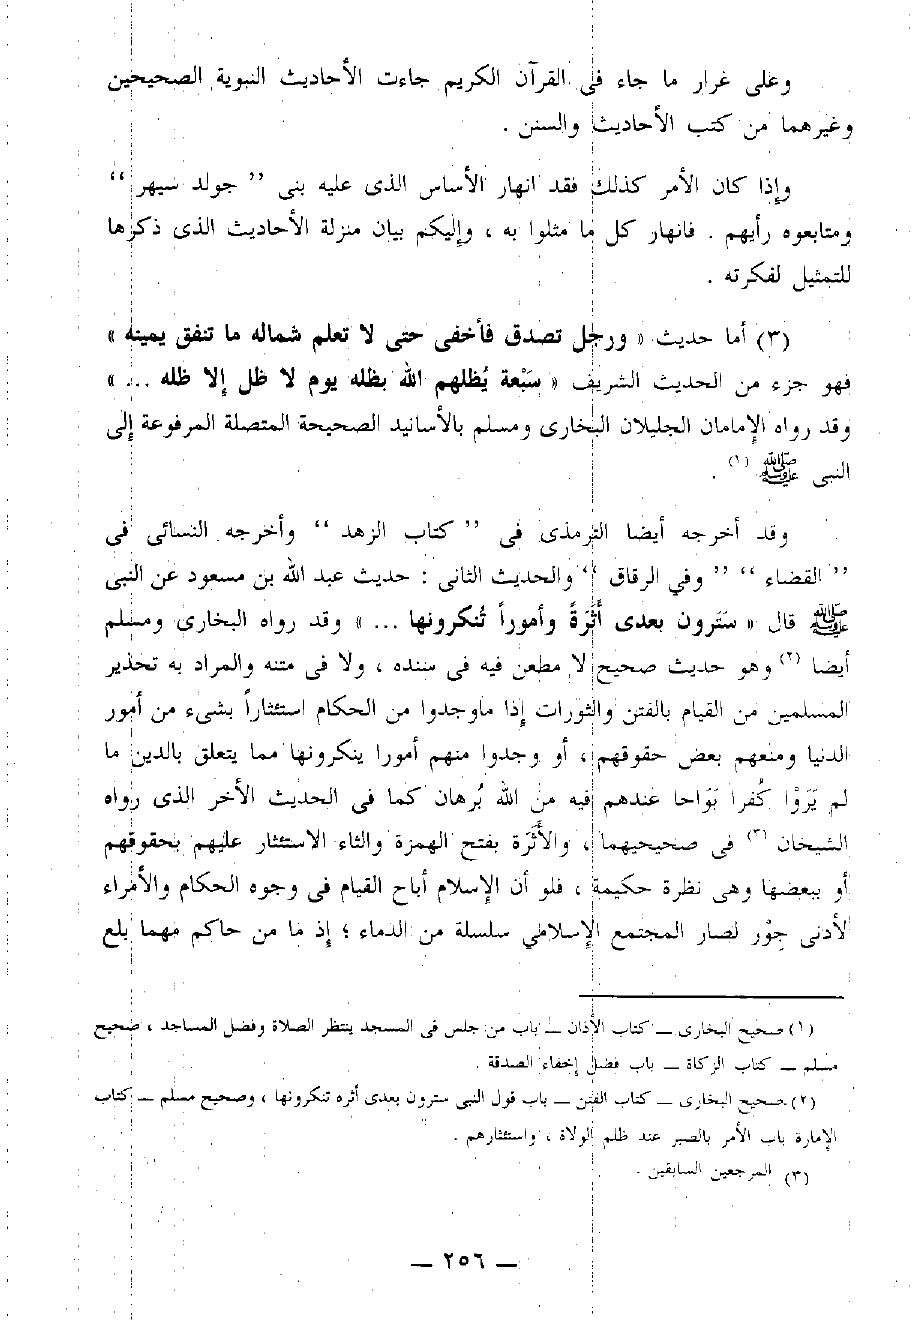 وعلى غرار ما جاء فى القرآن الكريم جاءت الأحاديث النبوية الصحيحين
وغيرهما من كتب الأحاديث والسنن .
وإذا كان الأمر كذلك فقد انهار الأساس الذى عليه بنى ” جولد سيهر “
ومتابعوه رأيهم . فانهار كل ما مثلوا به ، وإليكم بيان منزلة الأحاديث الذى ذكرها
للتمثيل لفكرته .
(٣) أما حديث « ورجل تصدق فأخفى حتى لا تعلم شماله ما تنفق يمينه »
فهو جزء من الحديث الشريف « سَبْعة يُظلهم الله بظله يوم لا ظل إلا ظله ... »
وقد رواه الإمامان الجليلان البخارى ومسلم بالأسانيد الصحيحة المتصلة المرفوعة إلى
النبى ﷺ (١) .
وقد أخرجه أيضا الترمذى فى ” كتاب الزهد “ وأخرجه النسائى فى
” القضاء “ ” وفي الرقاق “ والحديث الثانى : حديث عبد الله بن مسعود عن النبى
ﷺ قال « سَتَرون بعدى أَثَرَةً وأموراً تُنكرونها ... » وقد رواه البخارى ومسلم
أيضا (٢) وهو حديث صحيح لا مطعن فيه فى سنده ، ولا فى متنه والمراد به تحذير
المسلمين من القيام بالفتن والثورات إذا ماوجدوا من الحكام استئثاراً بشىء من أمور
الدنيا ومنعهم بعض حقوقهم ، أو وجدوا منهم أمورا ينكرونها مما يتعلق بالدين ما
لم يَرَوْا كُفرا بَوَاحا عندهم فيه من الله بُرهان كما فى الحديث الأخر الذى رواه
الشيخان (٣) فى صحيحيهما ، والأَثَرة بفتح الهمزة والثاء الاستئثار عليهم بحقوقهم
أو ببعضها وهى نظرة حكيمة ، فلو أن الإسلام أباح القيام فى وجوه الحكام والأمراء
لأدنى جوْر لصار المجتمع الإسلامي سلسلة من الدماء ؛ إذ ما من حاكم مهما بلغ
(١) صحيح البخارى ـ كتاب الأذان ـ باب من جلس فى المسجد ينتظر الصلاة وفضل المساجد ، صحيح
مسلم ـ كتاب الزكاة ـ باب فضل إخفاء الصدقة .
(٢) صحيح البخارى ـ كتاب الفتن ـ باب قول النبى سترون بعدى أثره تنكرونها ، وصحيح مسلم ـ كتاب
الإمارة باب الأمر بالصبر عند ظلم الولاة ، واستئثارهم .
(٣) المرجعين السابقين .
ـ ٢٥٦ ـ